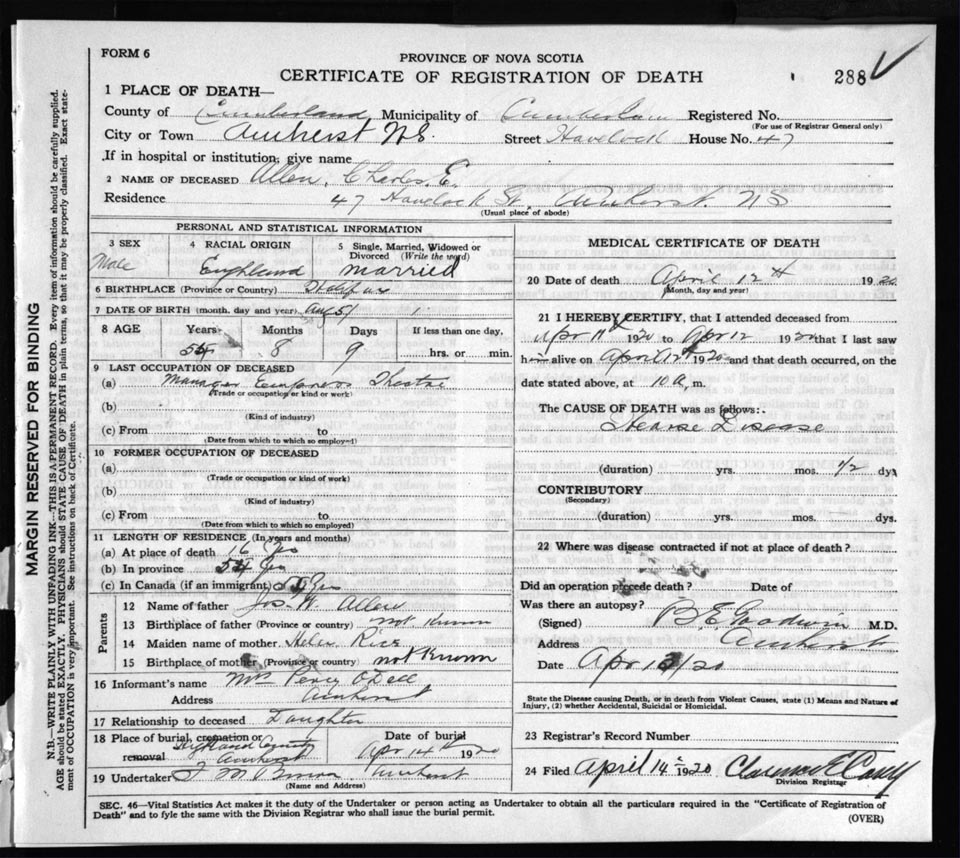 FORM 6
PROVINCE OF NOVA SCOTIA
CERTIFICATE OF REGISTRATION OF DEATH
288
1 PLACE OF DEATH—
County of Cumberland Municipality of Cumberland Registered No.
(For use of Registrar General only)
City or Town Amherst N.S. Street Havelock House No. 47
If in hospital or institution, give name
2 NAME OF DECEASED Allen, Charles. E.
Residence 47 Havelock St. Amherst. N S
(Usual place of abode)
PERSONAL AND STATISTICAL INFORMATION
3 SEX 4 RACIAL ORIGIN 5 Single, Married, Widowed or Divorced (Write the word)
Male England married
6 BIRTHPLACE (Province or Country) Halifax
7 DATE OF BIRTH (month, day and year) Aug 5/
8 AGE Years Months Days If less than one day,
8 9 hrs. or min.
9 LAST OCCUPATION OF DECEASED
(a) Manager Empress Theatre
(Trade or occupation or kind or work)
(b)
(Kind of industry)
(c) From to
(Date from which to which so employed)
10 FORMER OCCUPATION OF DECEASED
(a)
(Trade or occupation or kind of work)
(b)
(Kind of industry)
(c) From to
(Date from which to which so employed)
11 LENGTH OF RESIDENCE (In years and months)
(a) At place of death 16 yrs
(b) In province 54 yrs
(c) In Canada (if an immigrant) yrs
Parents
12 Name of father Jos. W. Allen
13 Birthplace of father (Province or country) not Known
14 Maiden name of mother Helen Rice
15 Birthplace of mother (Province or country) not Known
16 Informant's name Mrs Percy O'Dell
Address Amherst
17 Relationship to deceased Daughter
18 Place of burial, cremation or removal Highland Cemetery Amherst
Date of burial Apr 14th 1920
19 Undertaker F M Brown Amherst
(Name and Address)
MEDICAL CERTIFICATE OF DEATH
20 Date of death April 12th 1920
(Month, day and year)
21 I HEREBY CERTIFY, that I attended deceased from
Apr 11 1920 to Apr 12 1920 that I last saw
him alive on April 12th 1920 and that death occurred, on the
date stated above, at 10 a, m.
The CAUSE OF DEATH was as follows:.
Disease
(duration) yrs. mos. 1/2 dys.
CONTRIBUTORY
(Secondary)
(duration) yrs. mos. dys.
22 Where was disease contracted if not at place of death?
Did an operation precede death? Date of
Was there an autopsy?
(Signed) B. E. Goodwin M.D.
Address Amherst
Date Apr 13/20
State the Disease causing Death, or in death from Violent Causes, state (1) Means and Nature of
Injury, (2) whether Accidental, Suicidal or Homicidal.
23 Registrar's Record Number
24 Filed April 14th 1920 Clarence E
Division Registrar
SEC. 46—Vital Statistics Act makes it the duty of the Undertaker or person acting as Undertaker to obtain all the particulars required in the "Certificate of Registration of
Death" and to fyle the same with the Division Registrar who shall issue the burial permit.
(OVER)
MARGIN RESERVED FOR BINDING
N.B.—WRITE PLAINLY WITH UNFADING INK—THIS IS A PERMANENT RECORD. Every item of information should be carefully supplied.
AGE should be stated EXACTLY. PHYSICIANS should STATE CAUSE OF DEATH in plain terms, so that it may be properly classified. Exact state-
ment of OCCUPATION is very important. See instructions on back of Certificate.